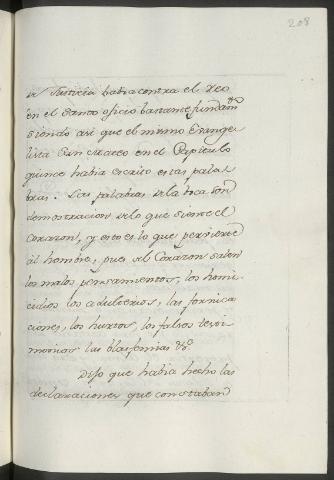 208
de Justicia habia contra el Reo
en el Santo oficio bastante fundamto
siendo asi que el mismo Evange
lista San Mateo en el Capitulo
quince habia escrito estas pala
bras: Las palabras de la boca son
demostracion de lo que siente el
Corazon, y esto es lo que pervierte
al hombre, pues del Corazon salen
los malos pensamientos, los homi
cidios los adulterios, las fornica
ciones, los hurtos, los falsos testi
monios las blasfemias &a.
Dijo que habia hecho las
declaraciones que constaban